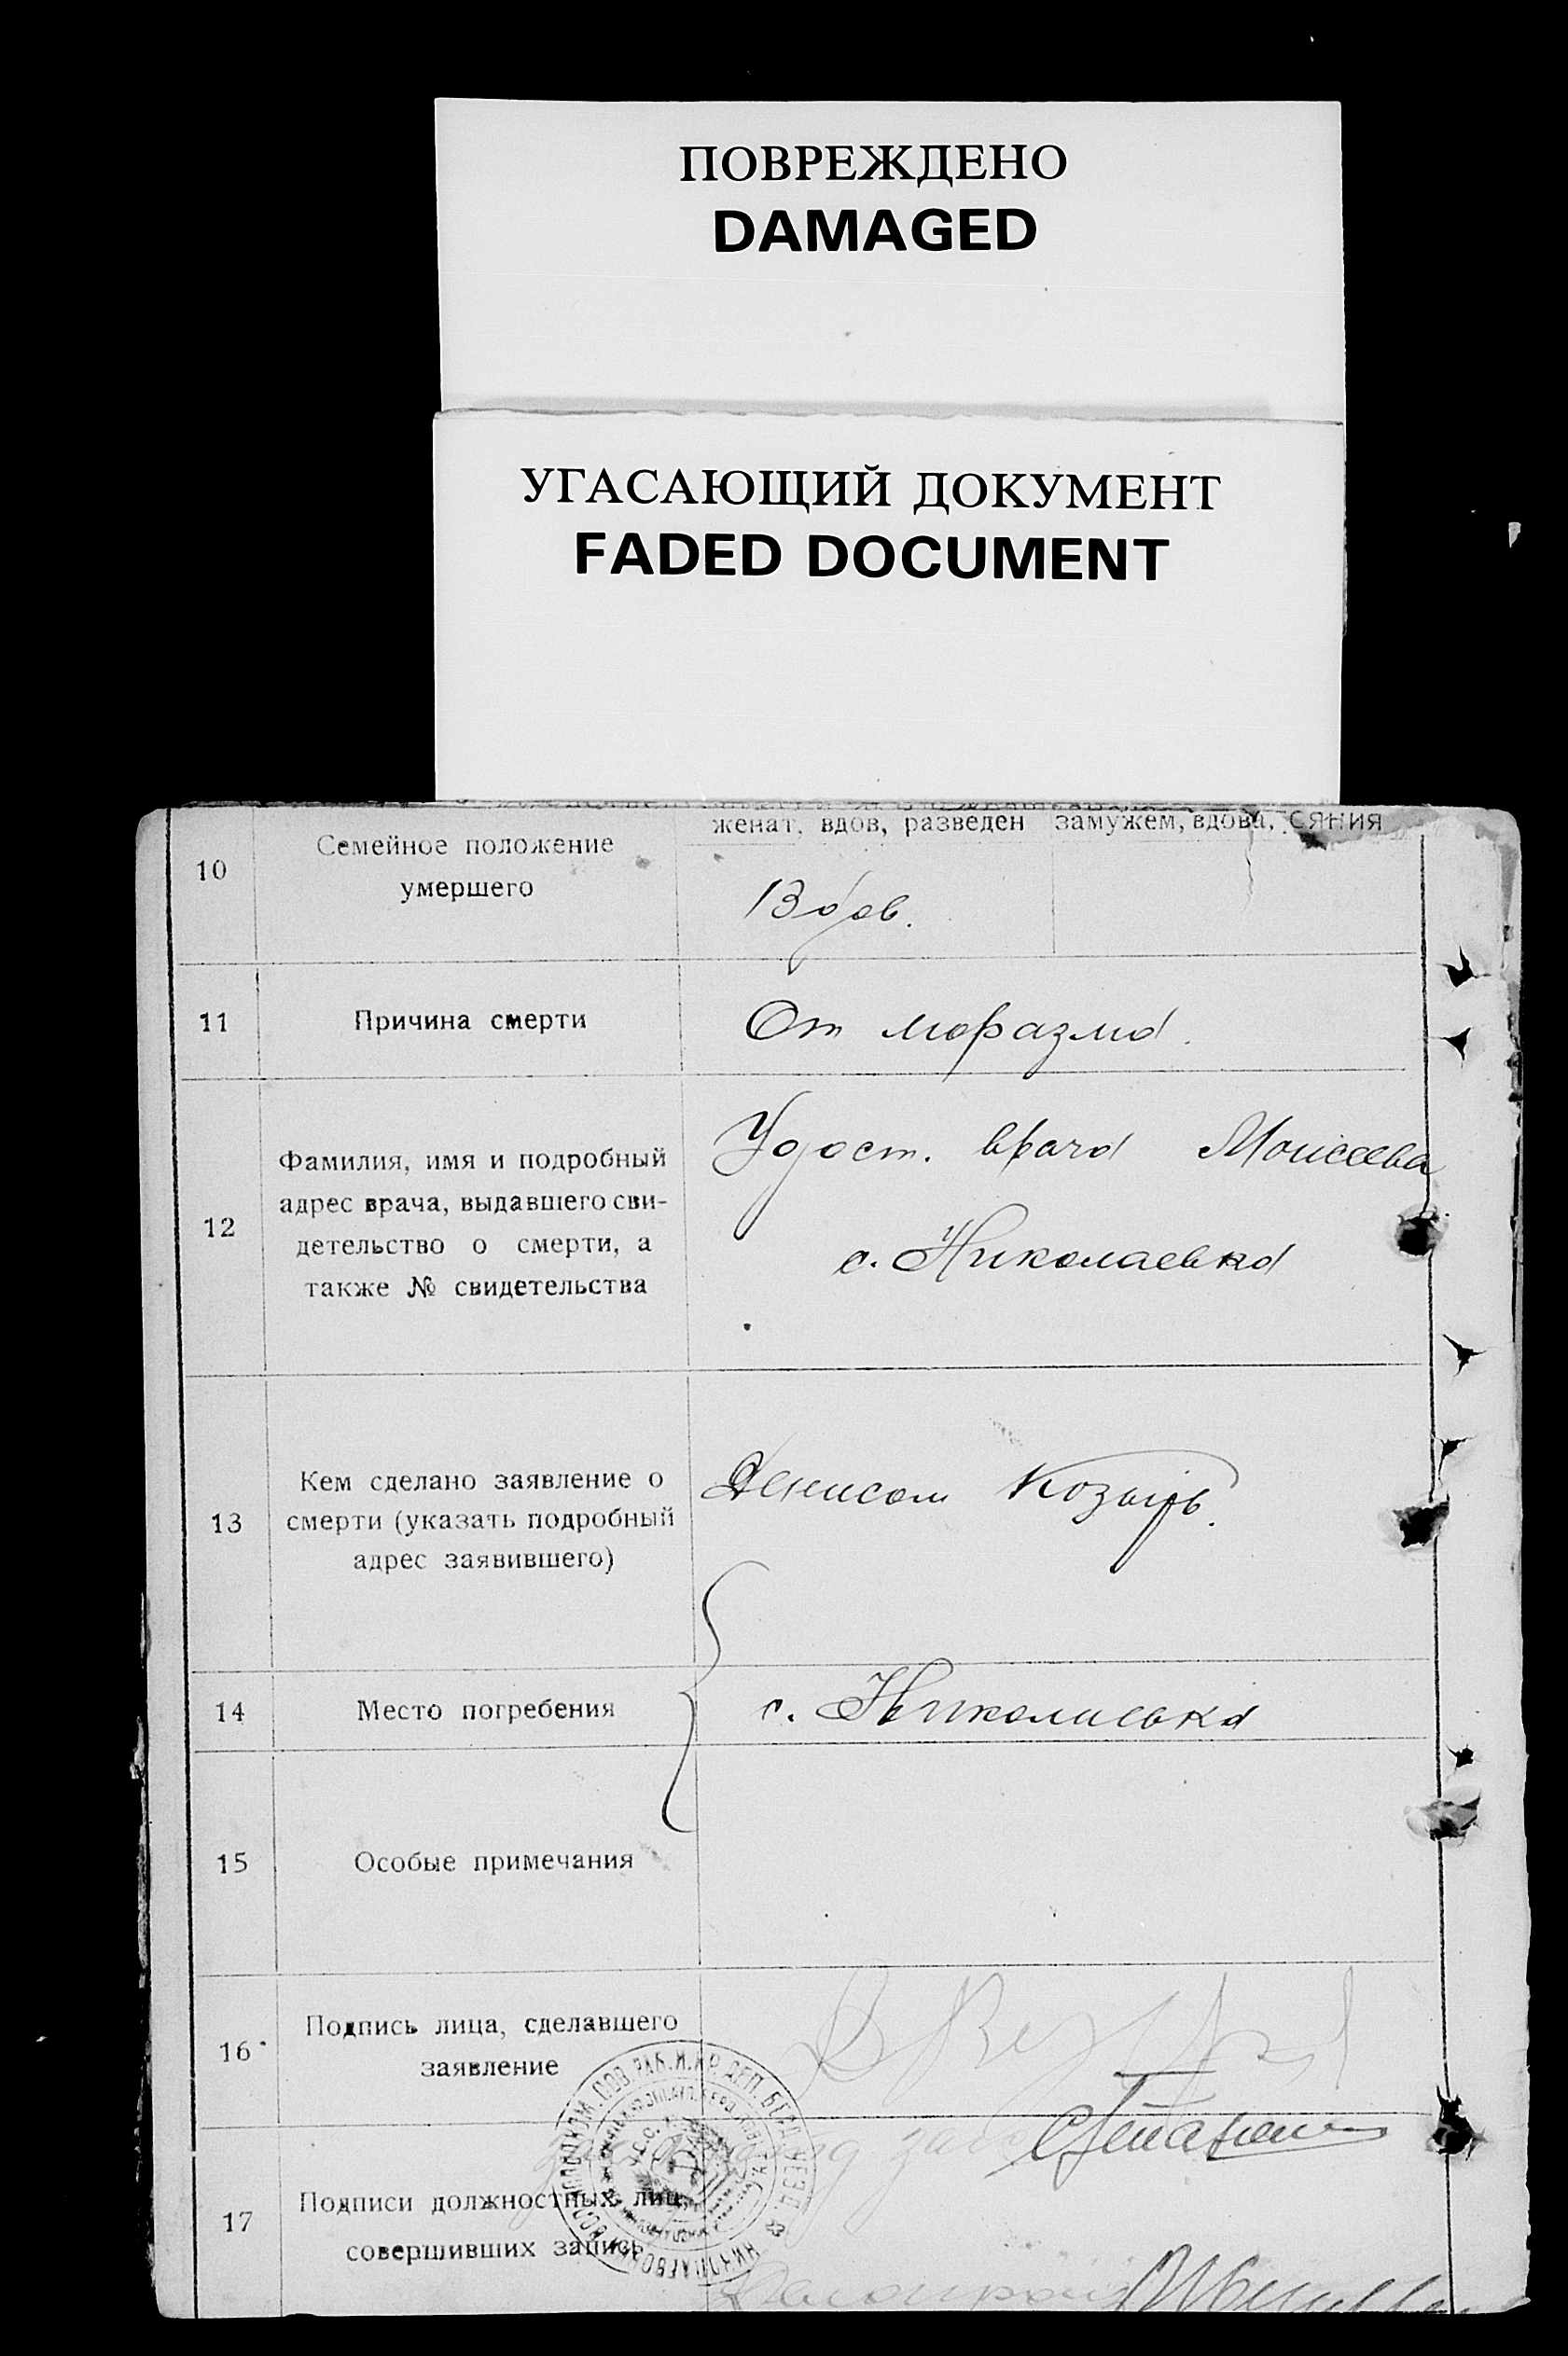 ПОВРЕЖДЕНО
DAMAGED
УГАСАЮЩИЙ ДОКУМЕНТ
FADED DOCUMENT
женат, вдов, разведен замужем, вдова,
10 Семейное положение
умершего
Вдов.
11 Причина смерти От моразма.
12 Фамилия, имя и подробный
адрес врача, выдавшего сви-
детельство о смерти, а
также № свидетельства
Удост. врача Моисеева
с. Николаевка
13 Кем сделано заявление о
смерти (указать подробный
адрес заявившего)
Денисом
14 Место погребения с. Николаевка
15 Особые примечания
16 Подпись лица, сделавшего
заявление
17 Подписи должностных лиц,
совершивших запись